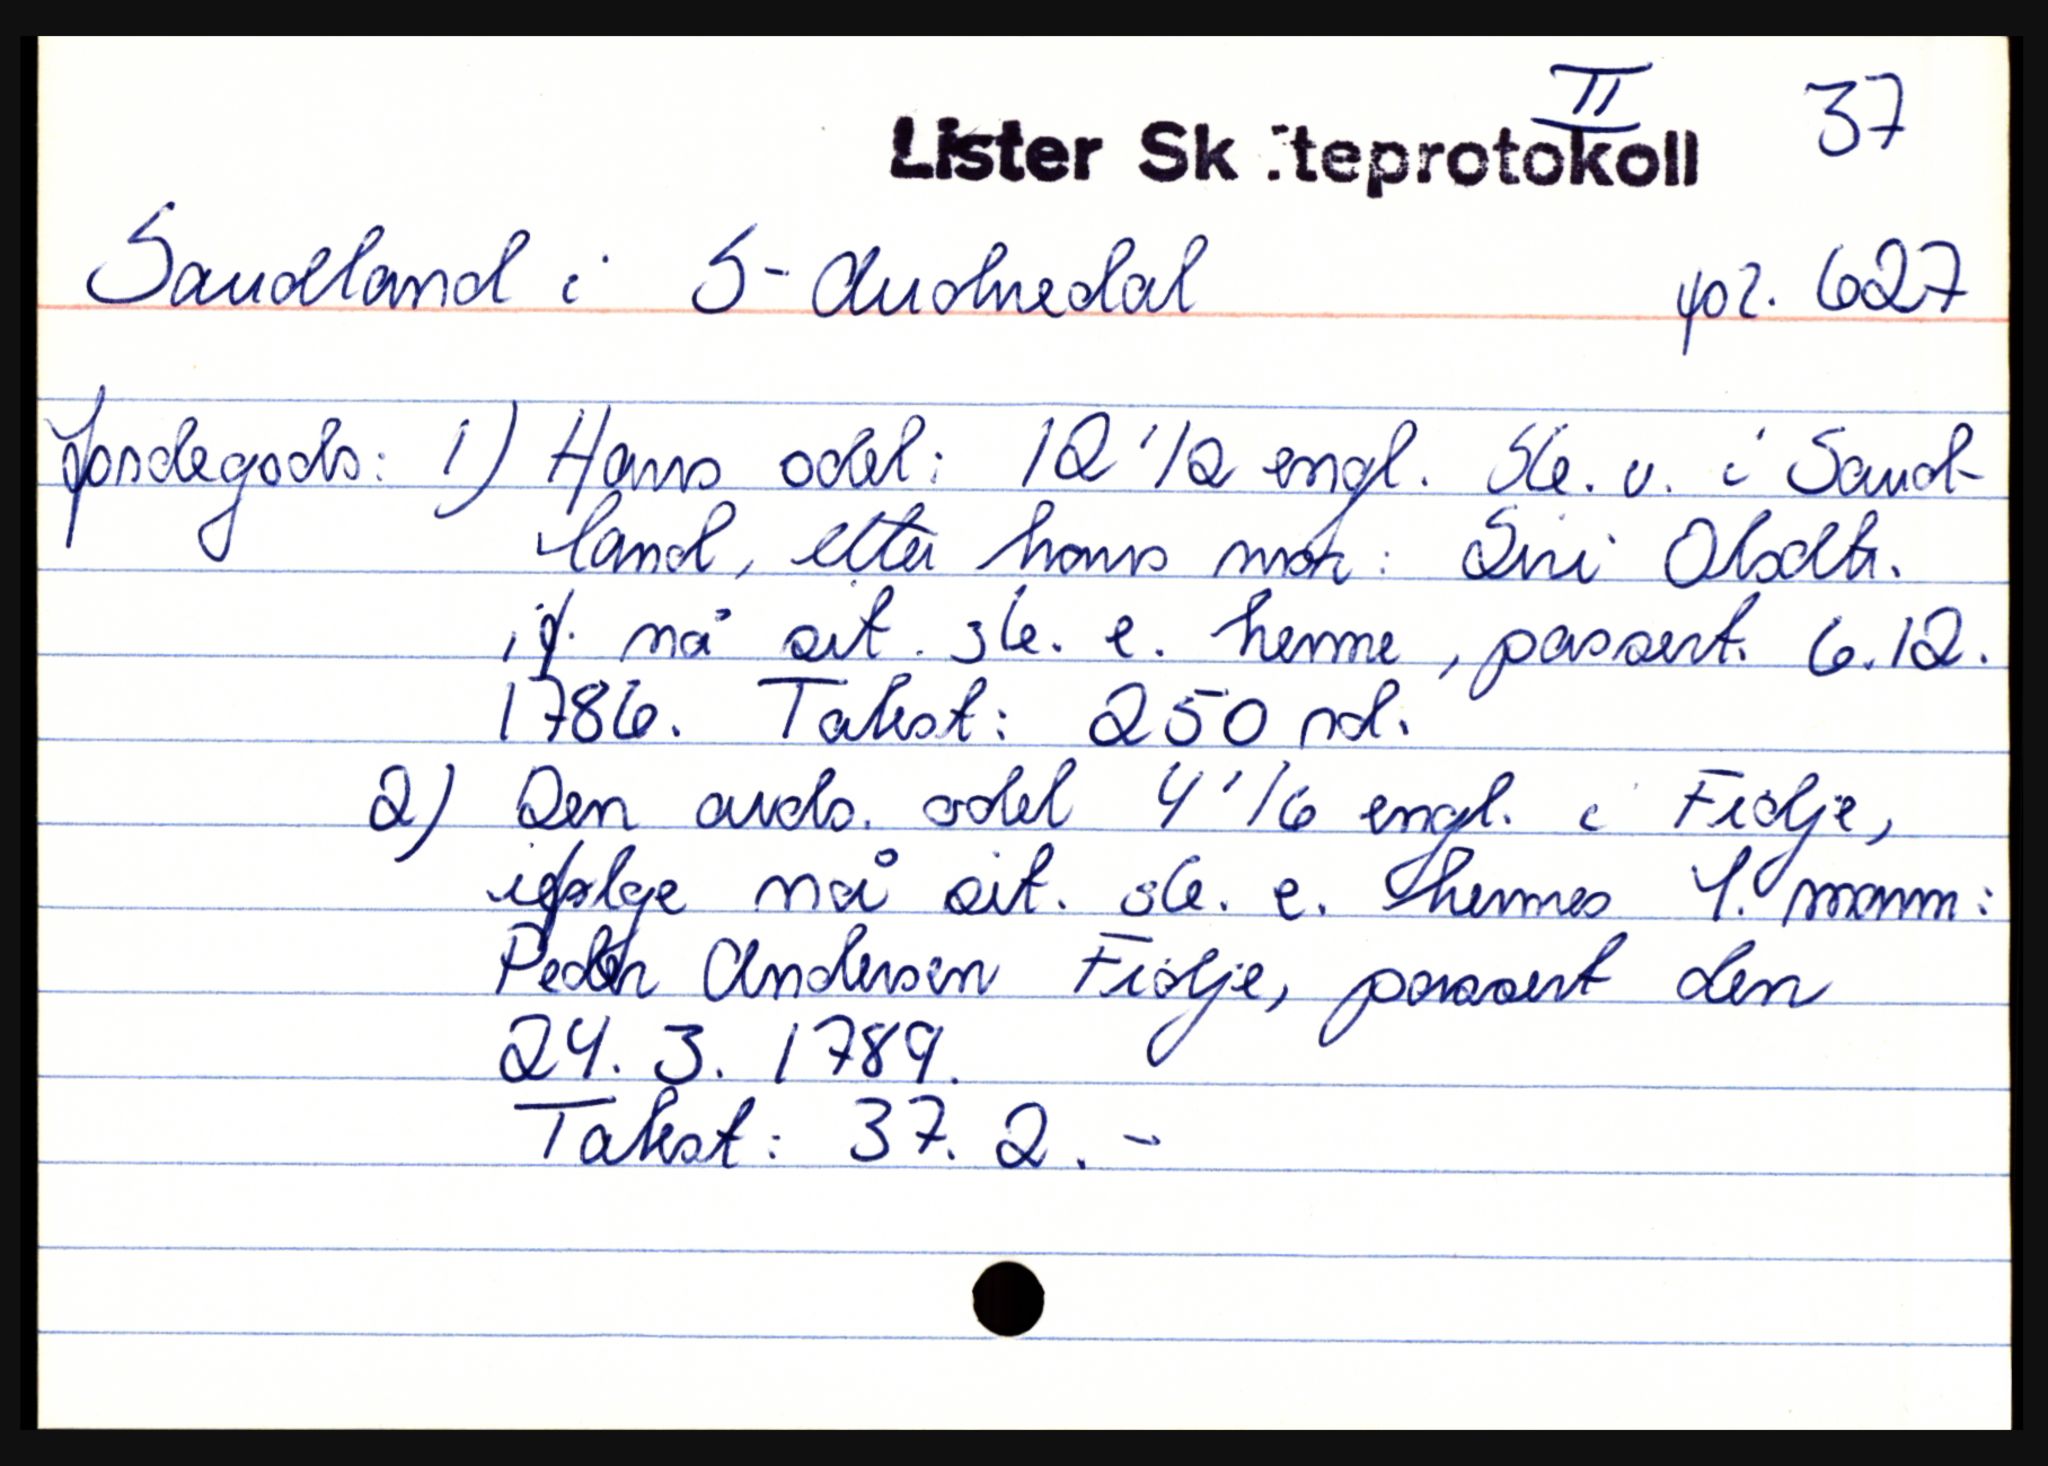 II 37
Lister Sk teprotokoll
Saudland i S-Audnedal fol. 627
Jordegods: 1) Hans odel: 12 1/2 engl. sk. v. i Saud-
land, etter hans mor: Siri Olsdtr.
if. nå sit. sk. e. henne, passert. 6.12.
1786. Takst: 250 rd.
2) Den avds. odel 4 1/6 engl. i Fidje,
ifølge nå sit. sk. e. hennes 1. mann:
Peder Andersen Fidje, passert den
24. 3. 1789.
Takst: 37. 2. -